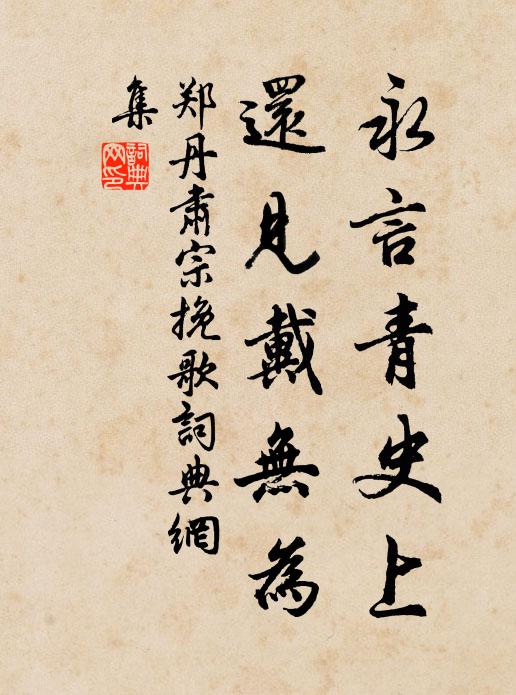 永言青史上
還見戴無為
郑丹肅宗挽歌詞典網
集
詞典
网印